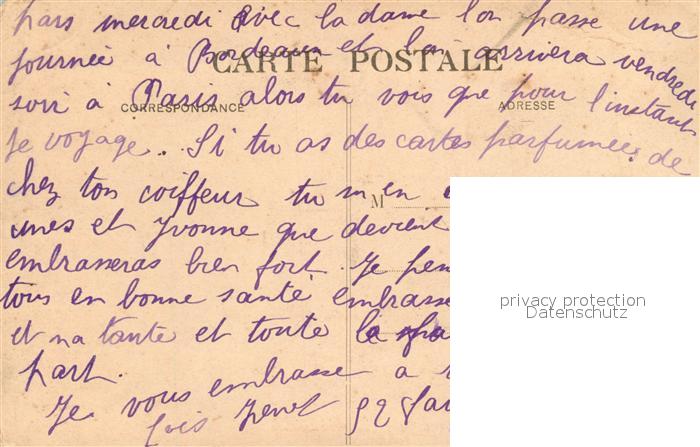 pars mercredi avec la dame l'on passe une
journée à Bordeaux et l'on arrivera vendredi
CARTE POSTALE
soir à Paris alors tu vois que pour l'instant
CORRESPONDANCE ADRESSE
je voyage. Si tu as des cartes parfumées de
chez ton coiffeur tu m'en
M
unes et Yvonne que devient
embrasseras bien fort. Je pen
tous en bonne santé embrasse
et ma tante et toute la
part.
Je vous embrasse a
privacy protection
Datenschutz